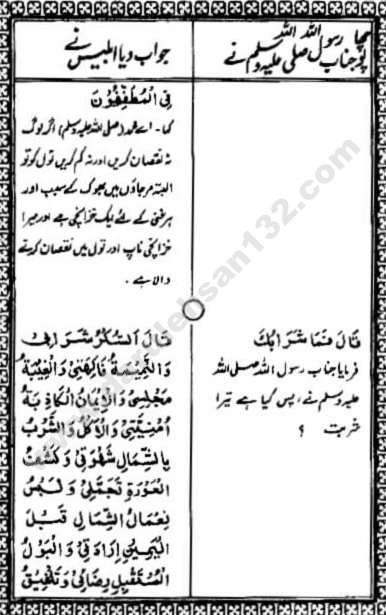 پوچھا رسول اللہ اللہ
جناب صلی علیہ وسلم نے
جواب دیا ابلیس نے
فِی الْمُطَفِّفُوْنَ
کہا۔ اے محمد (صلی اللہ علیہ وسلم) اگر لوگ
نہ نقصان کریں اور نہ کم کریں تول کو تو
البتہ مر جاؤں میں بھوک کے سبب اور
ہر غنی کے لئے ایک خزانچی ہے اور میرا
خزانچی ناپ اور تول میں نقصان کرنے
والا ہے۔
قَالَ فَمَا شَرَابُكَ
فرمایا جناب رسول اللہ صلی اللہ
علیہ وسلم نے، پس کیا ہے تیرا
شربت ؟
قَالَ اَلسُّكْرُ شَرَابِیْ
وَالنَّمِیْمَةُ فَاكِهَتِیْ وَالْغِیْبَةُ
مَجْلِسِیْ وَالْاِیْمَانُ الْكَاذِبَةُ
اُمْنِیَّتِیْ وَالْاَكْلُ وَالشُّرْبُ
بِالشِّمَالِ شَهْوَتِیْ وَكَشْفُ
الْعَوْرَةِ تَجَمُّلِیْ وَلُبْسُ
نِعَالِ الشِّمَالِ قَبْلَ
الْیَمِیْنِ اِرَادَتِیْ وَالْبَوْلُ
الْمُسْتَقْبِلِ رِضَائِیْ وَتَخْلِیْقُ
www.dareahsan132.com